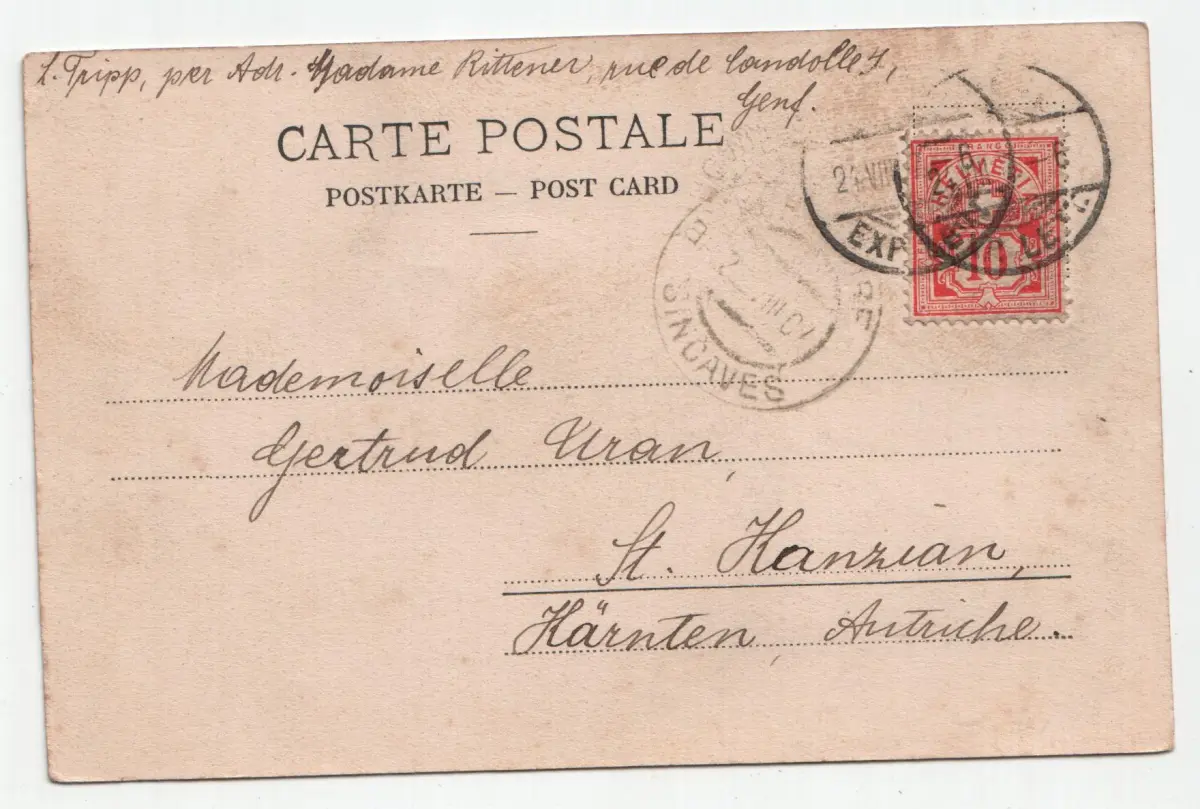 L. Tripp, per Adr. Madame Rittener, rue de Candolle
Genf.
CARTE POSTALE
POSTKARTE — POST CARD
FRANCO
HELVETIA
10
EXP
SINCAVES
Mademoiselle
Gertrud Uran,
St. Kanzian,
Kärnten, Autriche.